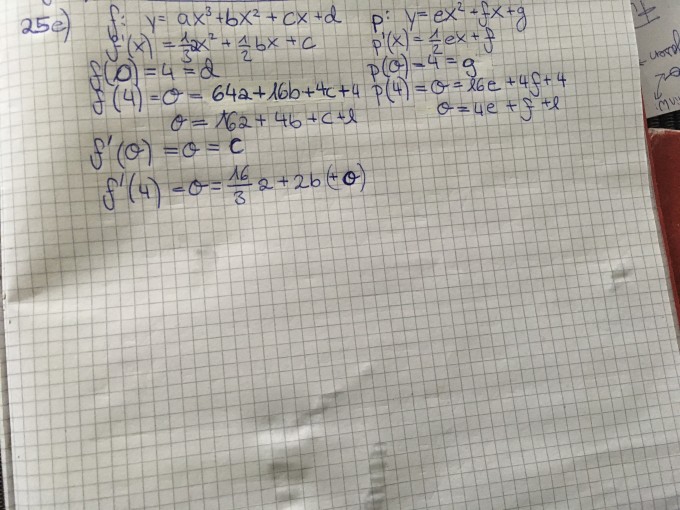 25e) f: y = ax³+bx² + cx + d
f'(x) = 1/3 ax² + 1/2 bx + c
f(0) = 4 = d
f'(4) = 0 = 64a + 16b + 4c + 4
0 = 16a + 4b + c + 1
f'(0) = 0 = c
f'(4) = 0 = 16/3 a + 2b (+0)
p: y = ex² + fx + g
p'(x) = 1/2 ex + f
p(0) = 4 = g
p(4) = 0 = 16e + 4f + 4
0 = 4e + f + 1